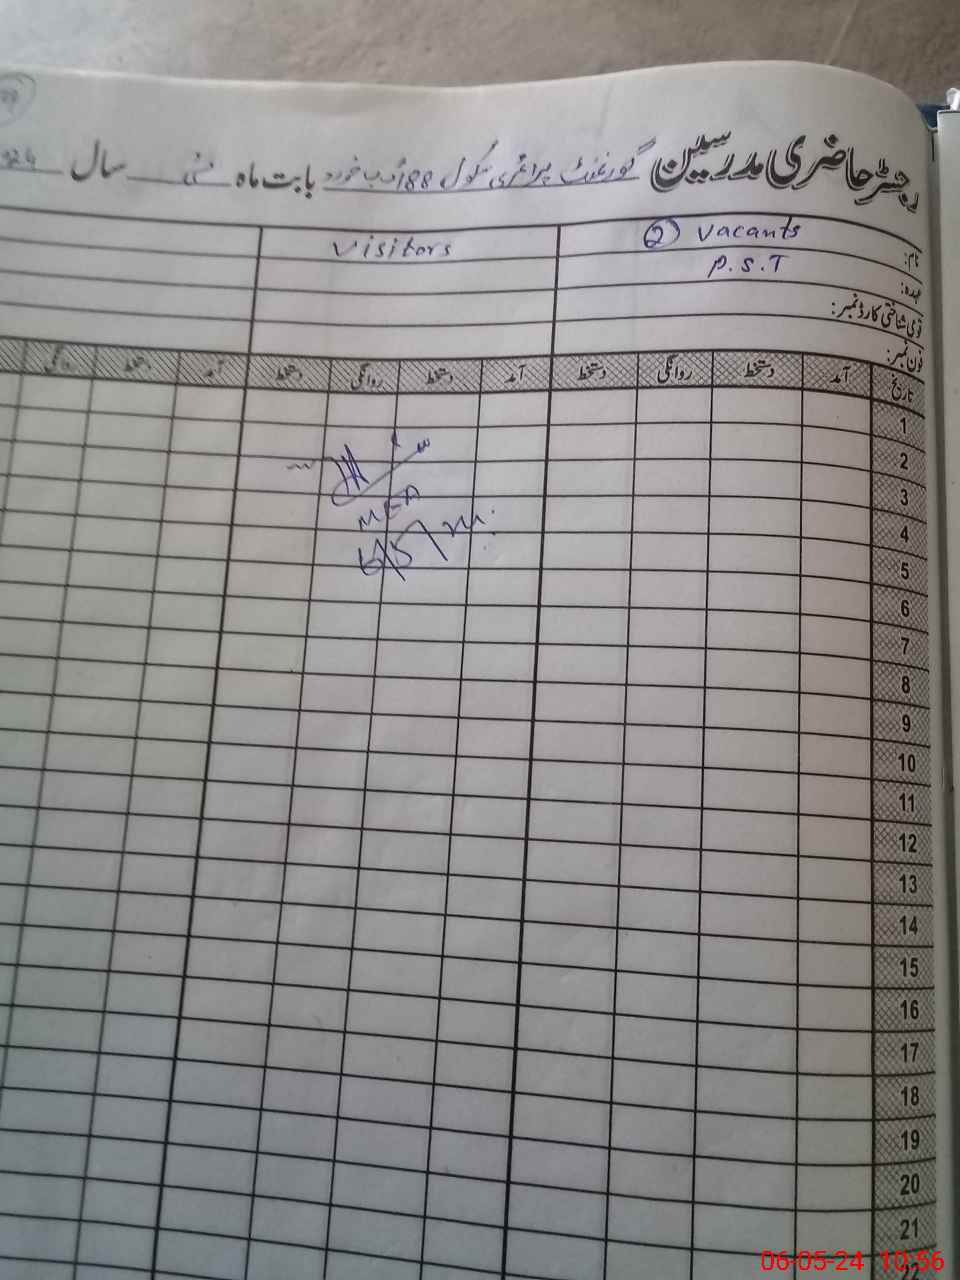 رجسٹر حاضری مدرسین گورنمنٹ پرائمری سکول 188 خورد بابت ماہ مئی سال
نام: ② Vacants Visitors
عہدہ: P.S.T
قومی شناختی کارڈ نمبر:
فون نمبر:
تاریخ آمد دستخط روانگی دستخط آمد دستخط روانگی دستخط آمد دستخط روانگی
1
2
3
MEA
4
6/5/24
5
6
7
8
9
10
11
12
13
14
15
16
17
18
19
20
21
06-05-24 10:56